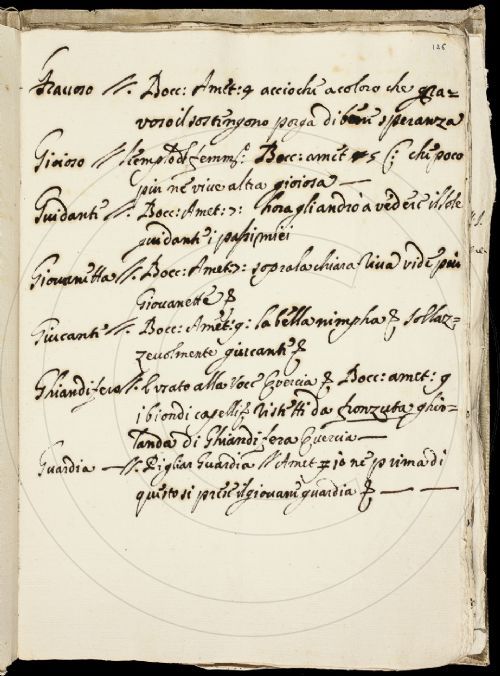 126
Gravoso //. Bocc: Amet: 4 accioche a coloro che gra=
voso il sostengono porga di bene speranza
Gioioso // femmˢ: Bocc: amet 5 che poco
piu ne vive altra gioiosa —
Guidante //. Bocc: Amet: 7: hora gli andrò a vedere il sole
guidante i passi miei
Giovanetta //. Bocc: Amet 7: sopra la chiara riva vide piu
Giovanette
Giucante //. Bocc: Amet: 9: la bella nimpha sollaz=
zevolmente giucante
Ghiandifero //. Usato alla voce Quercia Bocc: amet: 9
i biondi capelli ristretti da fronzuta ghir=
landa di Ghiandifera Quercia —
Guardia —//. Pigliar Guardia // Amet 10 ne prima di
questo si prese il giovane guardia — —